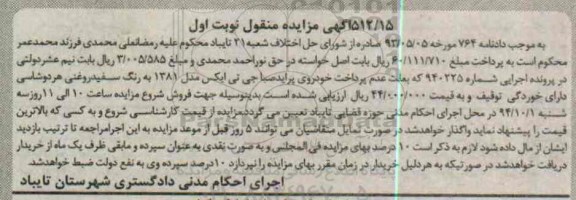 ۵۱۲/۱۵آگهی مزایده منقول نوبت اول
به موجب دادنامه ۷۶۴ مورخه ۹۳/۰۵/۰۵ صادره از شورای حل اختلاف شعبه ۳۱ تایباد محکوم علیه رمضانعلی محمدی فرزند محمدعمر
محکوم است به پرداخت مبلغ ۶۰/۱۱۱/۷۱۰ ریال بابت اصل خواسته در حق نوراحمد محمدی و مبلغ ۳/۰۰۵/۵۸۵ ریال بابت نیم عشردولتی
در پرونده اجرایی شماره ۹۴۰۲۲۵ که بعلت عدم پرداخت خودروی پرایدصبا جی تی ایکس مدل ۱۳۸۱ به رنگ سفیدروغنی هردوشاسی
دارای خوردگی توقیف و به قیمت ۴۴/۰۰۰/۰۰۰ ریال ارزیابی شده است بدینوسیله جهت فروش شروع مزایده ساعت ۱۰ الی ۱۱ روزسه
شنبه ۹۴/۱۰/۱ در محل اجرای احکام مدنی حوزه قضایی تایباد تعیین می گردد مزایده از قیمت کارشناسی شروع و به کسی که بالاترین
قیمت را پیشنهاد نماید واگذار خواهدشد در صورت تمایل متقاضیان می توانند ۵ روز قبل از موعد مزایده به این اجرامراجعه تا ترتیب بازدید
ایشان از مال داده شود لازم به ذکر است ۱۰ درصد بهای مزایده فی المجلس و به صورت نقدی به عنوان سپرده و مابقی ظرف یک ماه از خریدار
دریافت خواهدشد در صورتیکه به هردلیل خریدار در زمان مقرر بهای مزایده را نپردازد ۱۰ درصد سپرده وی به نفع دولت ضبط خواهدشد.
اجرای احکام مدنی دادگستری شهرستان تایباد